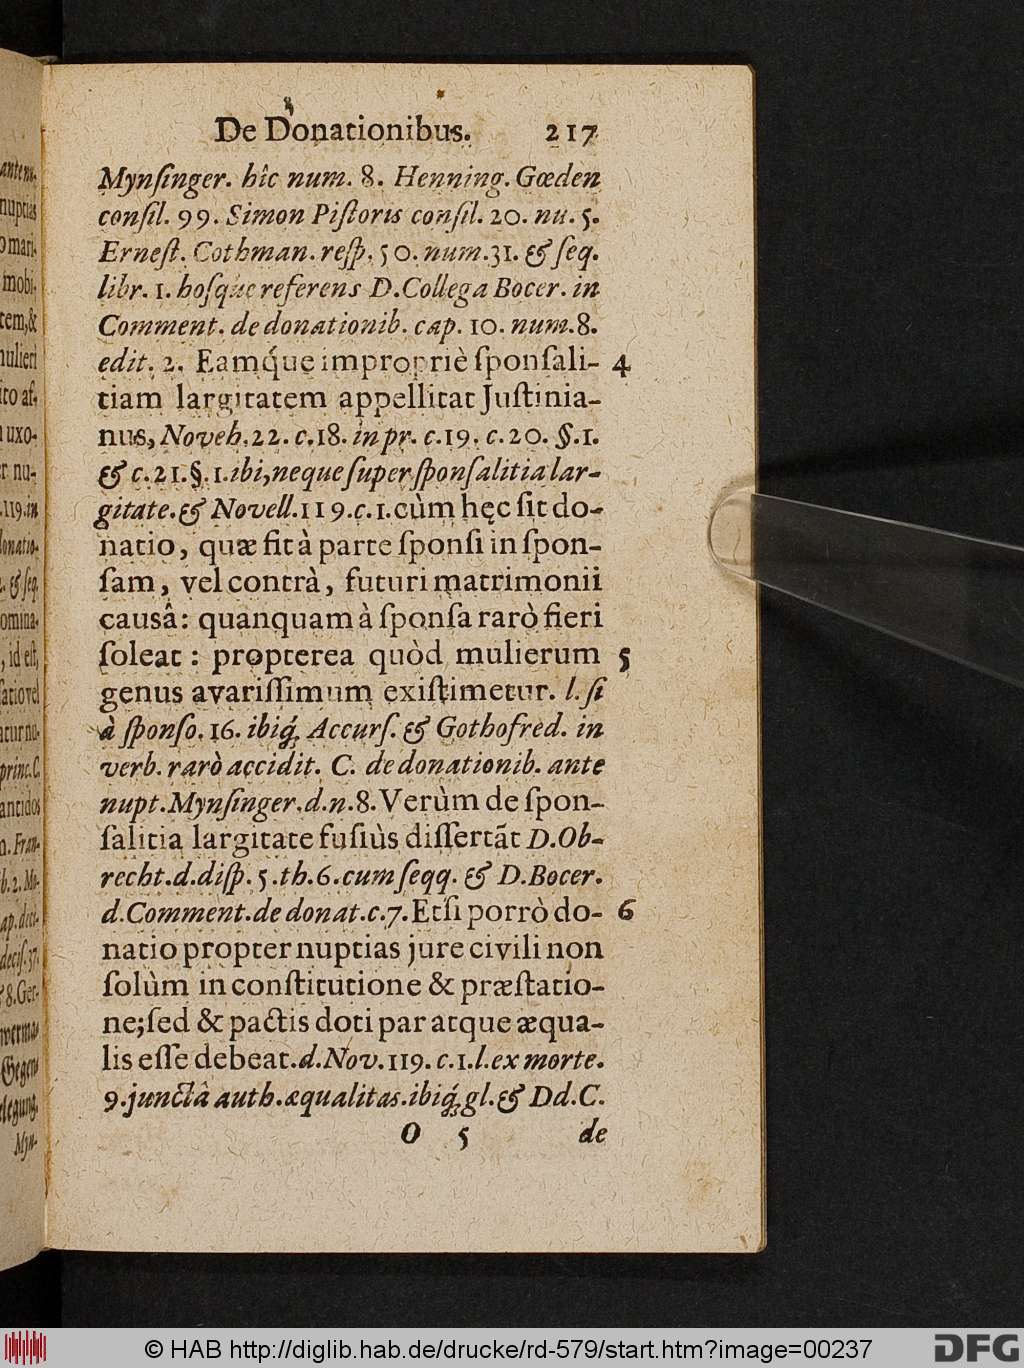 De Donationibus. 217
Mynſinger. hîc num. 8. Henning. Gœden
conſil. 99. Simon Piſtoris conſil. 20. nu. 5.
Erneſt. Cothman. reſp. 50. num. 31. & ſeq.
libr. 1. hoſque referens D. Collega Bocer. in
Comment. de donationib. cap. 10. num. 8.
edit. 2. Eamq́ue impropriè ſponſali- 4
tiam largitatem appellitat Juſtinia-
nus, Noveh. 22. c. 18. in pr. c. 19. c. 20. §. 1.
& c. 21. §. 1. ibi, neque ſuper ſponſalitia lar-
gitate. & Novell. 119. c. 1. cùm hęc ſit do-
natio, quæ fit à parte ſponſi in ſpon-
ſam, vel contrà, futuri matrimonii
causâ: quanquam à ſponſa rarò fieri
ſoleat: propterea quòd mulierum 5
genus avariſſimum exiſtimetur. l. ſi
à ſponſo. 16. ibiq́; Accurſ. & Gothofred. in
verb. rarò accidit. C. de donationib. ante
nupt. Mynſinger. d. n. 8. Verùm de ſpon-
ſalitia largitate fuſiùs diſſertãt D. Ob-
recht. d. diſp. 5. th. 6. cum ſeqq. & D. Bocer.
d. Comment. de donat. c. 7. Etſi porrò do- 6
natio propter nuptias jure civili non
ſolùm in conſtitutione & præſtatio-
ne; ſed & pactis doti par atque æqua-
lis eſſe debeat. d. Nov. 119. c. 1. l. ex morte.
9. junctâ auth. æqualitas. ibiq́; gl. & Dd. C.
O 5 de
© HAB http://diglib.hab.de/drucke/rd-579/start.htm?image=00237
DFG